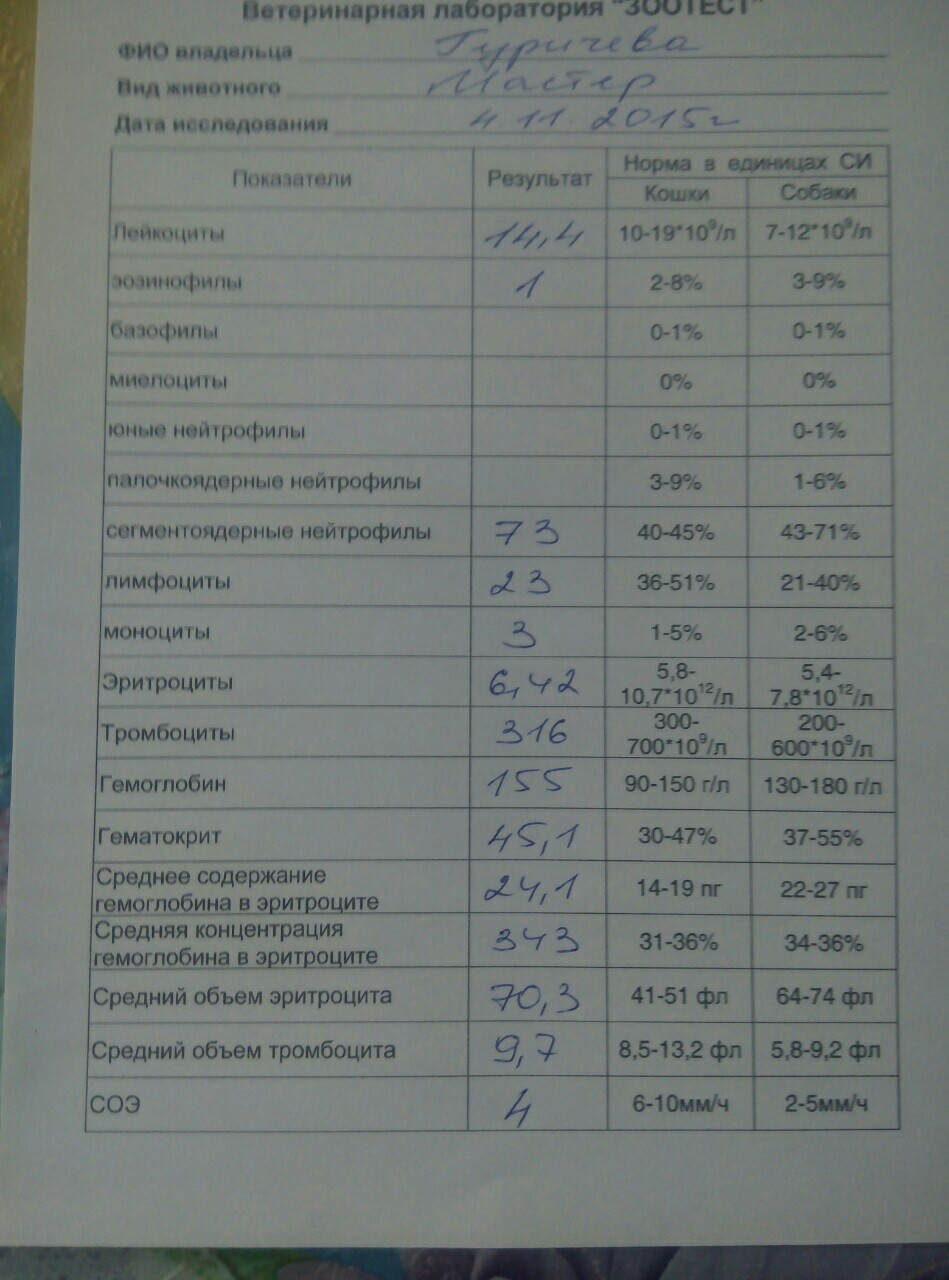 Ветеринарная лаборатория "ЗООТЕСТ"
ФИО владельца Гуричева
Вид животного Мастер
Дата исследования 4.11.2015г
Показатели Результат Норма в единицах СИ
Кошки Собаки
Лейкоциты 14,4 10-19*10⁹/л 7-12*10⁹/л
эозинофилы 1 2-8% 3-9%
базофилы 0-1% 0-1%
миелоциты 0% 0%
юные нейтрофилы 0-1% 0-1%
палочкоядерные нейтрофилы 3-9% 1-6%
сегментоядерные нейтрофилы 73 40-45% 43-71%
лимфоциты 23 36-51% 21-40%
моноциты 3 1-5% 2-6%
Эритроциты 6,42 5,8-10,7*10¹²/л 5,4-7,8*10¹²/л
Тромбоциты 316 300-700*10⁹/л 200-600*10⁹/л
Гемоглобин 155 90-150 г/л 130-180 г/л
Гематокрит 45,1 30-47% 37-55%
Среднее содержание
гемоглобина в эритроците 24,1 14-19 пг 22-27 пг
Средняя концентрация
гемоглобина в эритроците 343 31-36% 34-36%
Средний объем эритроцита 70,3 41-51 фл 64-74 фл
Средний объем тромбоцита 9,7 8,5-13,2 фл 5,8-9,2 фл
СОЭ 4 6-10мм/ч 2-5мм/ч